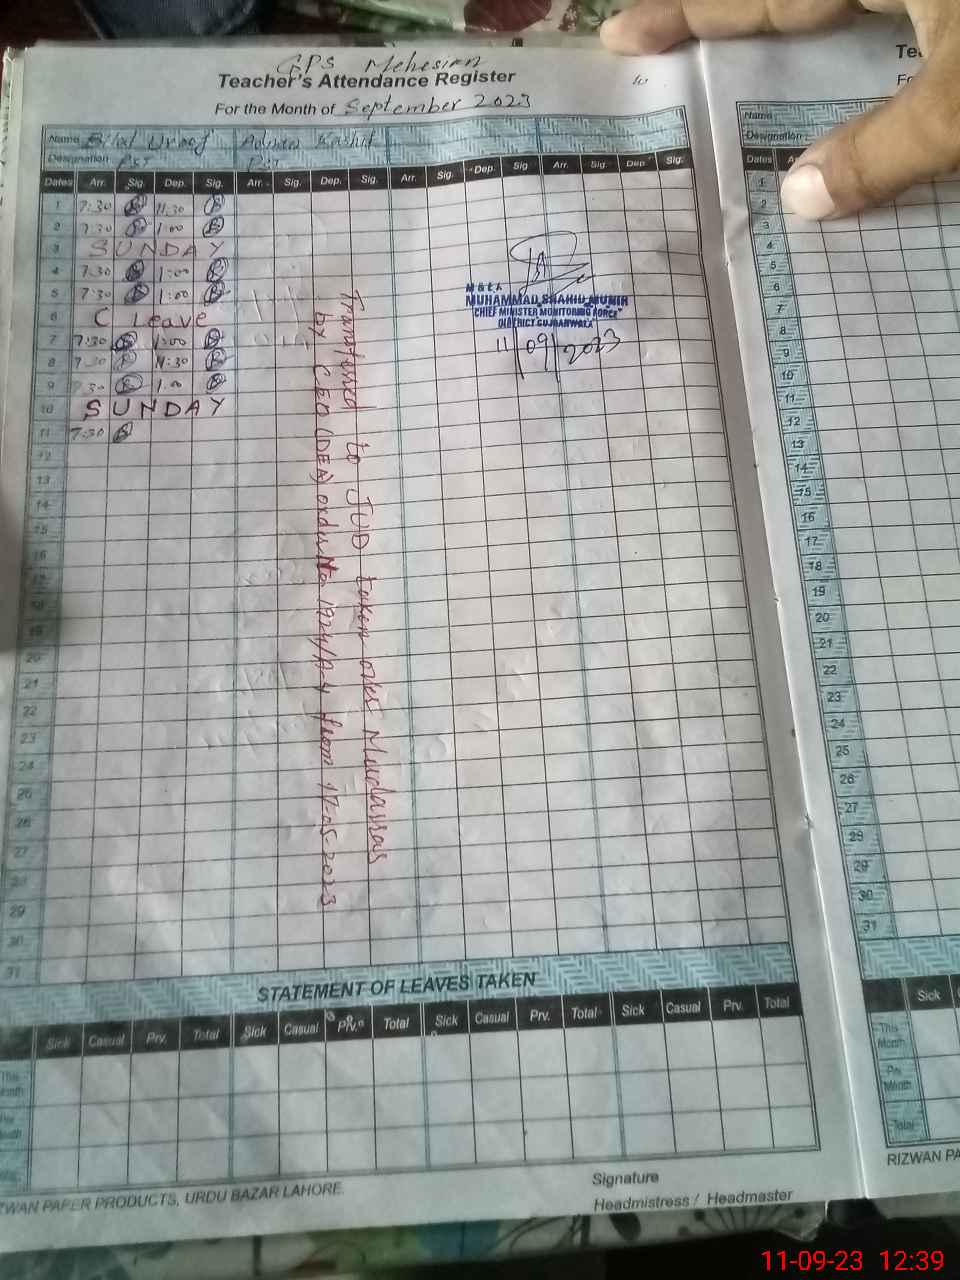 GPS Mehesian
Teacher's Attendance Register
For the Month of September 2023
Name Bilal Adnan Kashif
Designation PST PST
Dates Arr. Sig. Dep. Sig. Arr. Sig. Dep. Sig. Arr. Sig. Dep. Sig Arr. Sig. Dep. Sig.
1 7:30 11:30
2 7:30 1:00
3 SUNDAY
4 7:30 1:00
5 7:30 1:00
6 C Leave
7 7:30 1:00
8 7:30 11:30
9 7:30 1:00
10 SUNDAY
11 7:30
12
13
14
15
16
17
18
19
20
21
22
23
24
25
26
27
28
29
30
31
Transfered to JUD taken over Mudassar
by CEO (DEA) order No 1924/A-4 from 17-05-2023
M & E A
MUHAMMAD SHAHID MUNIR
"CHIEF MINISTER MONITORING FORCE"
DISTRICT GUJRANWALA
11/09/2023
STATEMENT OF LEAVES TAKEN
Sick Casual Prv. Total Sick Casual Prv. Total Sick Casual Prv. Total Sick Casual Prv. Total
This Month
Prv Month
Total
RIZWAN PAPER PRODUCTS, URDU BAZAR LAHORE.
Signature
Headmistress / Headmaster
Name
Designation
Dates
1
2
3
4
5
6
7
8
9
10
11
12
13
14
15
16
17
18
19
20
21
22
23
24
25
26
27
28
29
30
31
Sick
This Month
Prv Month
Total
RIZWAN PA
11-09-23 12:39